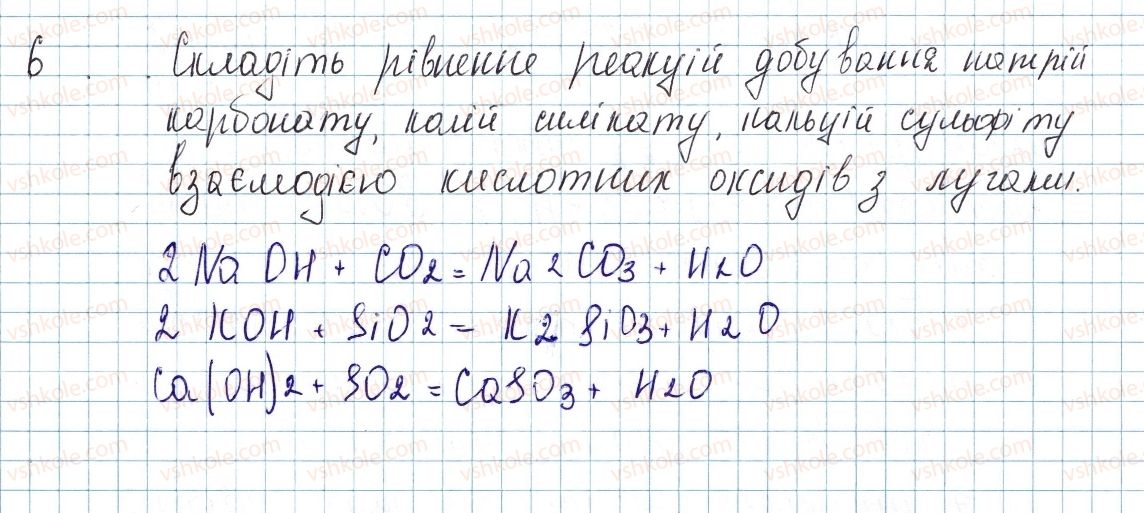 6 . . Складіть рівненне реакцій добування натрій
карбонату, калій силікату, кальцій сульфіту
взаємодією кислотних оксидів з лугами.
2 Na OH + CO2 = Na 2 CO3 + H2O
2 KOH + SiO2 = K2 SiO3 + H2O
Ca(OH)2 + SO2 = CaSO3 + H2O